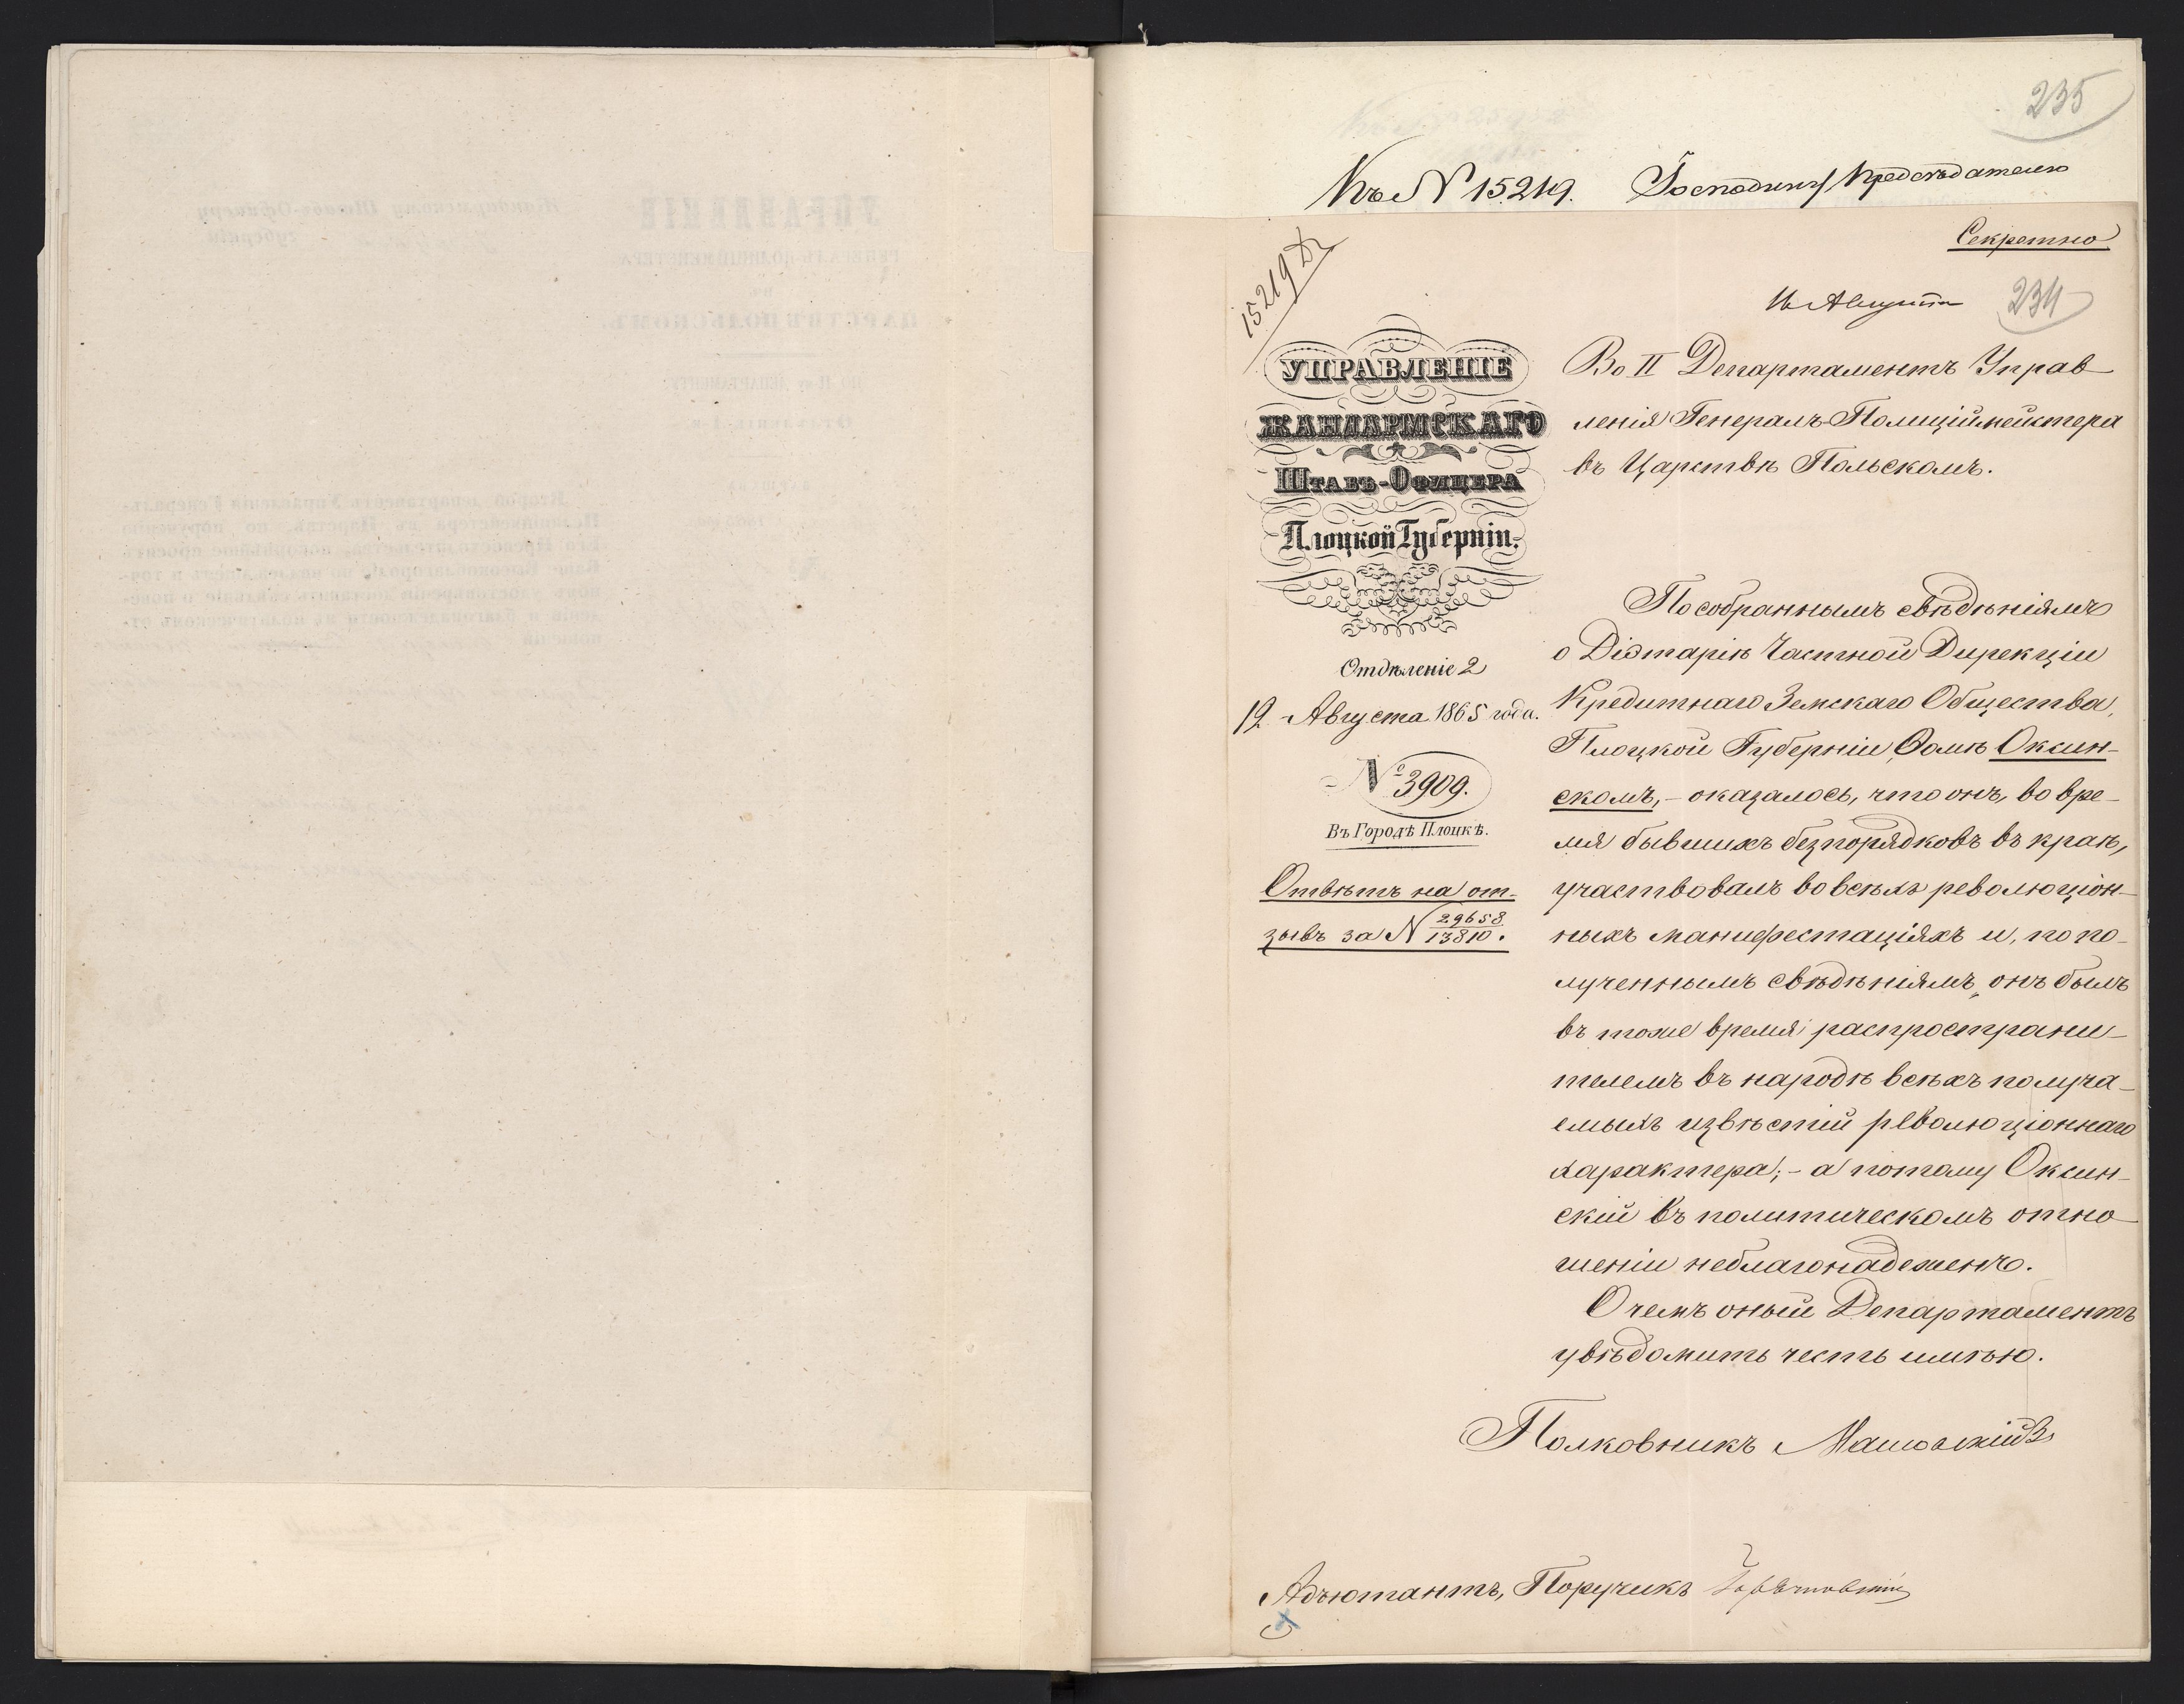 235
Къ № 15219. Господину Предсѣдателю
Секретно
15219
16 Августа 234
УПРАВЛЕНІЕ
ЖАНДАРМСКАГО
ШТАБЪ-ОФИЦЕРА
Плоцкой Губерніи.
Отдѣленіе 2
12 Августа 1865 года.
№ 3909.
Въ Городѣ Плоцкѣ.
Отвѣтъ на от-
зывъ за № 29658/13810.
Во II Департаментъ Управ
ленія Генералъ-Полиціймейстера
въ Царствѣ Польскомъ.
По собраннымъ свѣдѣніямъ
о Діэтаріѣ Частной Дирекціи
Кредитнаго Земскаго Общества,
Плоцкой Губерніи, Ѳомѣ Оксин-
скомъ, - оказалось, что онъ, во вре-
мя бывшихъ безпорядковъ въ краѣ,
участвовалъ во всѣхъ революціон-
ныхъ манифестаціяхъ и, по по-
лученнымъ свѣдѣніямъ, онъ былъ
въ тоже время распространи-
телемъ въ народѣ всѣхъ получа-
емыхъ извѣстій революціоннаго
характера; - а потому Оксин-
скій въ политическомъ отно-
шеніи неблагонадеженъ.
О чемъ оный Департаментъ
увѣдомить честь имѣю.
Полковникъ
Адъютантъ, Поручикъ